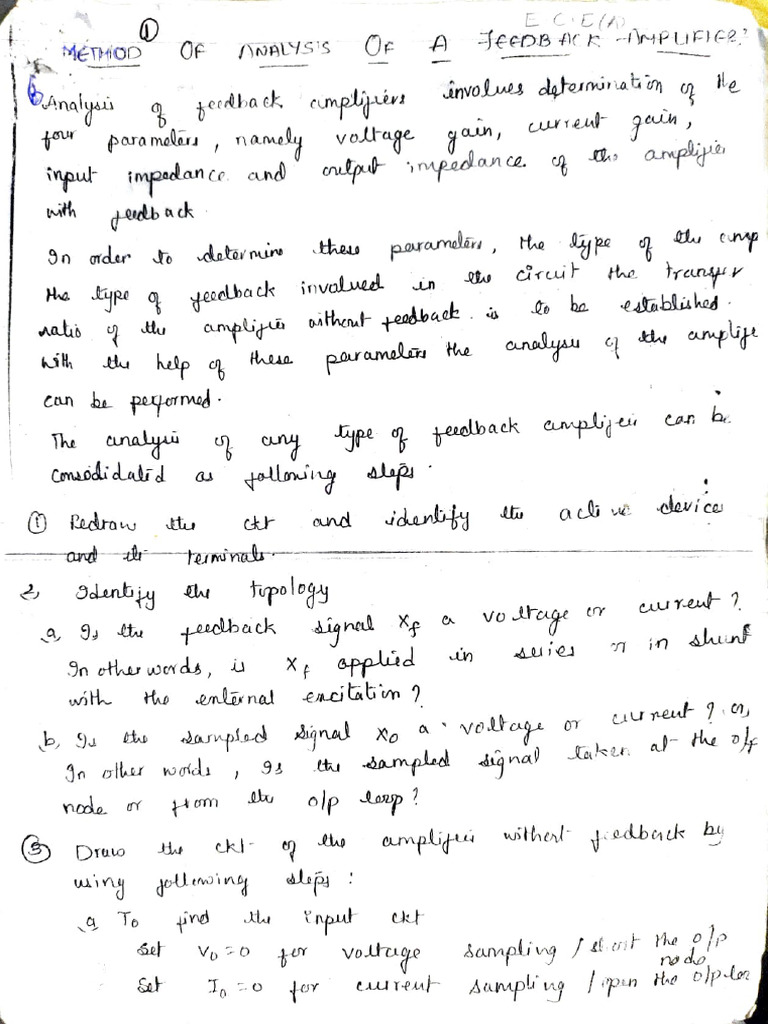 ①
E C E(A)
METHOD OF ANALYSIS OF A FEEDBACK AMPLIFIER?
Analysis of feedback amplifiers involves determination of the
four parameters, namely voltage gain, current gain,
input impedance and output impedance of the amplifier
with feedback.
In order to determine these parameters, the type of the amp
the type of feedback involved in the circuit the transfer
ratio of the amplifier without feedback is to be established.
With the help of these parameters the analysis of the amplifie
can be performed.
The analysis of any type of feedback amplifier can be
consodidated as following steps.
① Redraw the ckt and identify the active device
and its terminals.
2, Identify the topology
a, Is the feedback signal Xf a voltage or current?
In other words, is Xf applied in series or in shunt
with the external excitation?
b, Is the sampled signal Xo a voltage or current? or,
In other words, Is the sampled signal taken at the o/p
node or from the o/p loop?
③ Draw the ckt of the amplifier without feedback by
using following steps:
a, To find the input ckt
Set Vo=0 for voltage sampling / short the o/p
node
Set Io=0 for current sampling / open the o/p loo